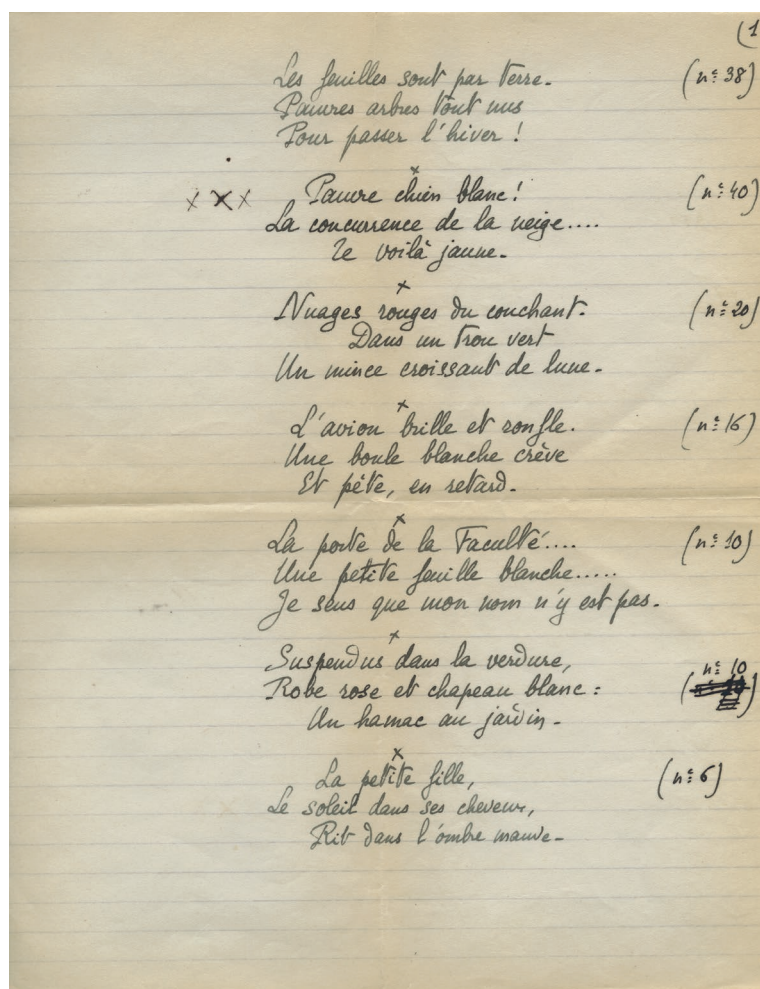 (1
Les feuilles sont par terre. (nº 38)
Pauvres arbres tout nus
Pour passer l'hiver !
x
x x x Pauvre chien blanc ! (nº 40)
La concurrence de la neige....
Le voilà jaune.
x
Nuages rouges du couchant. (nº 20)
Dans un trou vert
Un mince croissant de lune.
x
L'avion brille et ronfle. (nº 16)
Une boule blanche crève
Et pète, en retard.
x
La porte de la Faculté.... (nº 10)
Une petite feuille blanche.....
Je sens que mon nom n'y est pas.
x
Suspendus dans la verdure, nº 10
Robe rose et chapeau blanc :
Un hamac au jardin.
x
La petite fille, (nº 6)
Le soleil dans ses cheveux,
Rit dans l'ombre mauve.